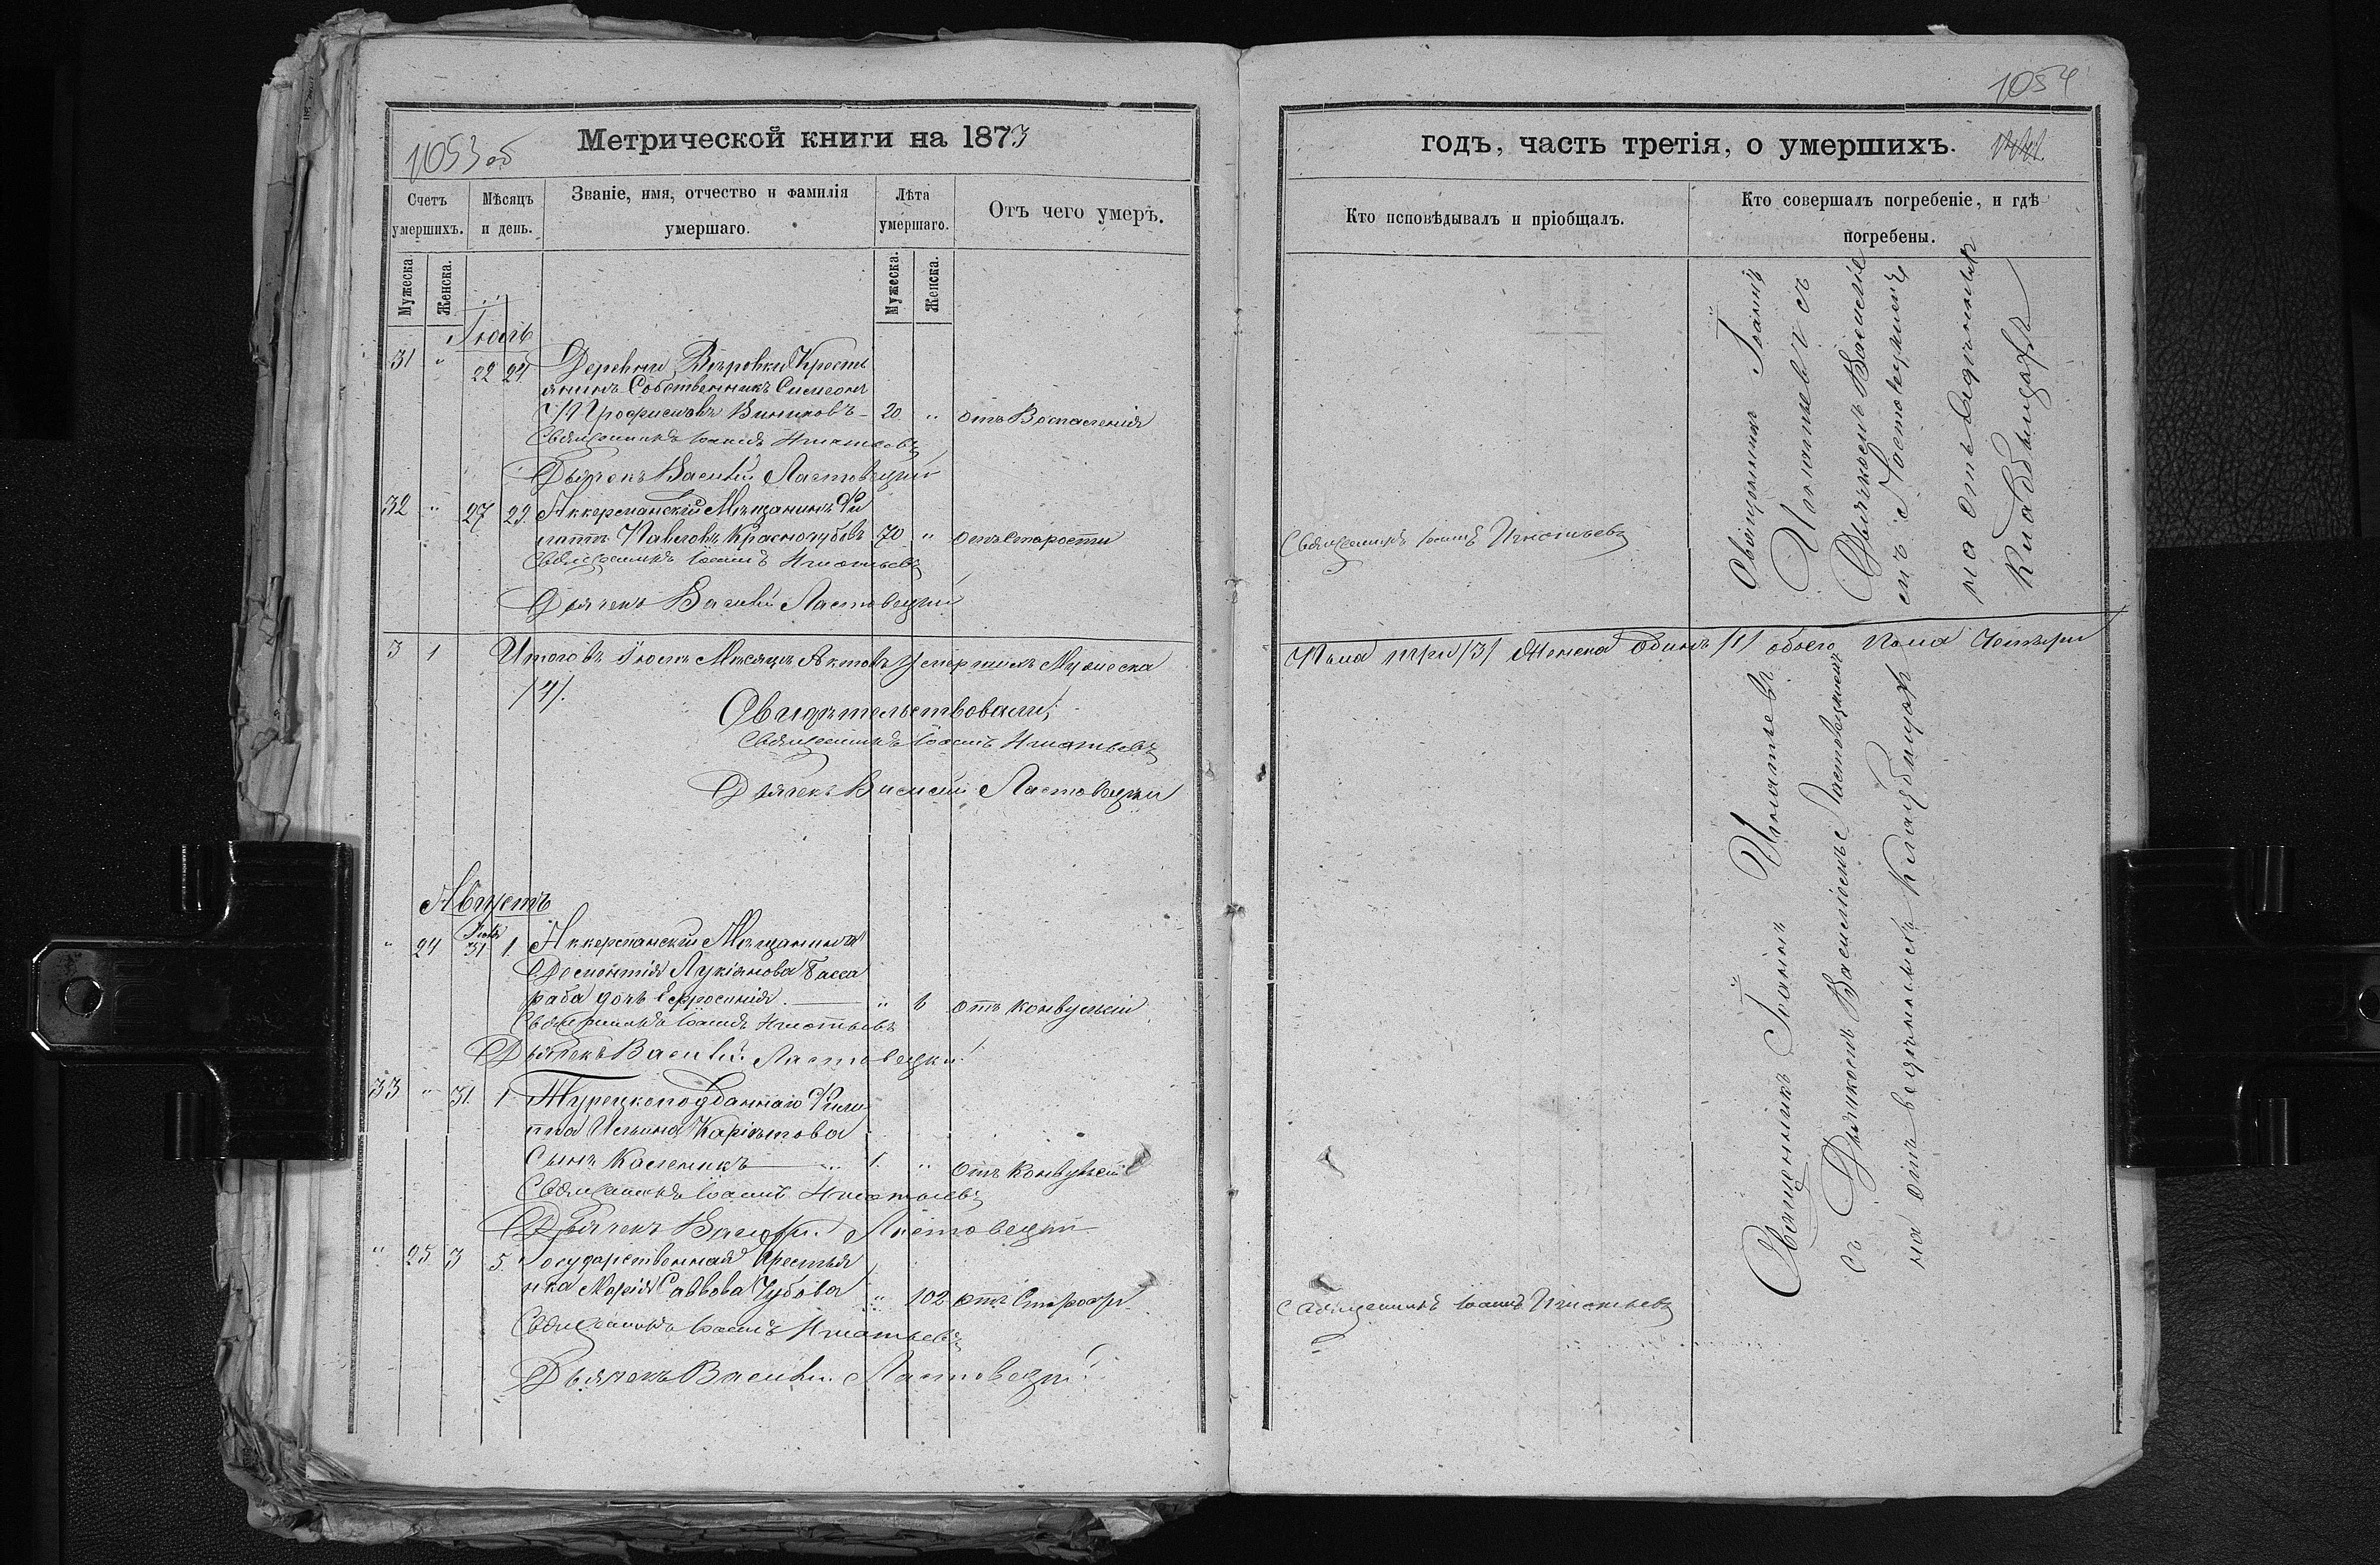 1053 об
Метрической книги на 1873
Счетъ умершихъ.
Мѣсяцъ и день.
Званіе, имя, отчество и фамилія умершаго.
Лѣта умершаго.
Отъ чего умеръ.
Мужеска.
Женска.
Мужеска.
Женска.
Іюль
31 " 22 24 Деревни Петровки Кресть
янинъ Собственникъ Симеонъ
Трофимовъ 20 " отъ Воспаленія
Священникъ Іоаннъ Игнатьевъ
Дьячекъ Василій Ластовецкій
32 " 27 29 Аккерманскій Мѣщанинъ Фи
липпъ Павловъ Краснолубовъ 70 " отъ старости
Священникъ Іоаннъ Игнатьевъ
Дьячекъ Василій Ластовецкій
3 1 Итого въ Іюлѣ Мѣсяцѣ Актовъ Умершихъ Мужеска
/4/.
Свидѣтельствовали;
Священникъ Іоаннъ Игнатьевъ
Дьячекъ Василій Ластовецкій
Августъ
" 24 Іюля 31 1 Аккерманскаго Мѣщанина
Дементія Лукіянова Басса
раба дочь Ефросинія " 6 отъ конвульсій
Священникъ Іоаннъ Игнатьевъ
Дьячекъ Василій Ластовецкій
33 " 31 1 Турецкоподданнаго Фили
ппа Ильина
Сынъ Калиникъ 1 " отъ Конвульсій
Священникъ Іоаннъ Игнатьевъ
Дьячекъ Василій Ластовецкій
" 25 3 5 Государственная Крестья
нка Марія Саввова Чубова " 102 отъ Старости
Священникъ Іоаннъ Игнатьевъ
Дьячекъ Василій Ластовецкій
1054
годъ, часть третія, о умершихъ.
Кто исповѣдывалъ и пріобщалъ.
Кто совершалъ погребеніе, и гдѣ погребены.
Священникъ Іоаннъ Игнатьевъ
Священникъ Іоаннъ
Игнатьевъ съ
Дьячкомъ Василіе
мъ Ластовецкимъ
на отведенномъ
Кладбищѣ
Пола три /3/ Женска Одинъ /1/ обоего Пола Четыри
Священникъ Іоаннъ Игнатьевъ
съ Дьячкомъ Василіемъ Ластовецкимъ
на отведенномъ Кладбищѣ
Священникъ Іоаннъ Игнатьевъ